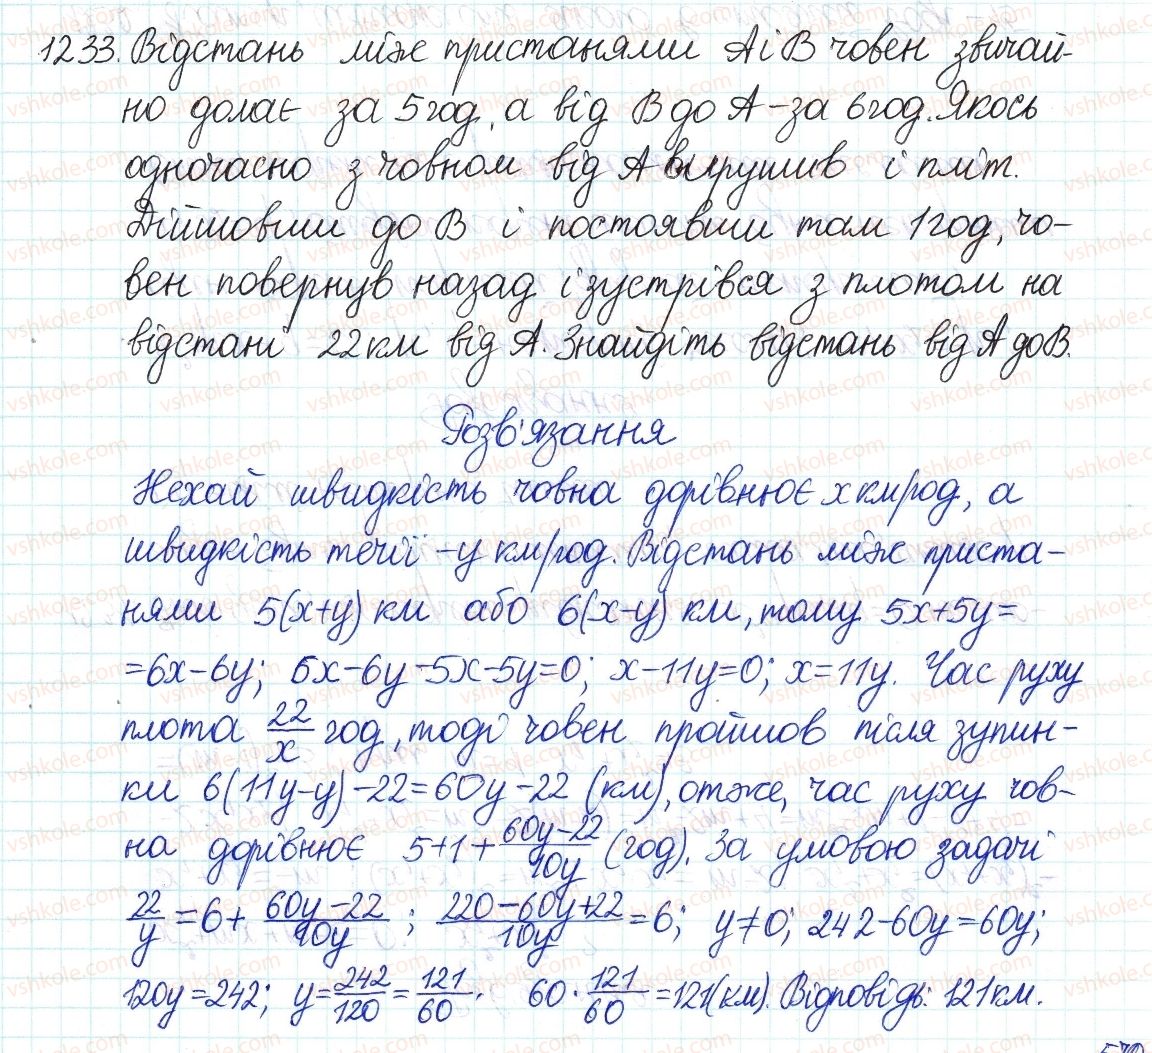 1233. Відстань між пристанями А і В човен звичай-
но долає за 5 год, а від В до А – за 6 год. Якось
одночасно з човном від А вирушив і пліт.
Дійшовши до В і постоявши там 1 год, чо-
вен повернув назад і зустрівся з плотом на
відстані 22 км від А. Знайдіть відстань від А до В.
Розв'язання
Нехай швидкість човна дорівнює x км/год, а
швидкість течії – y км/год. Відстань між приста-
нями 5(x+y) км або 6(x-y) км, тому 5x+5y=
=6x-6y; 6x-6y-5x-5y=0; x-11y=0; x=11y. Час руху
плота 22/x год, тоді човен пройшов після зупин-
ки 6(11y-y)-22=60y-22 (км), отже, час руху чов-
на дорівнює 5+1+(60y-22)/10y (год). За умовою задачі
22/y = 6 + (60y-22)/10y ; (220-60y+22)/10y = 6; y≠0; 242-60y=60y;
120y=242; y=242/120=121/60. 60·121/60=121(км). Відповідь: 121 км.
vshkole.com